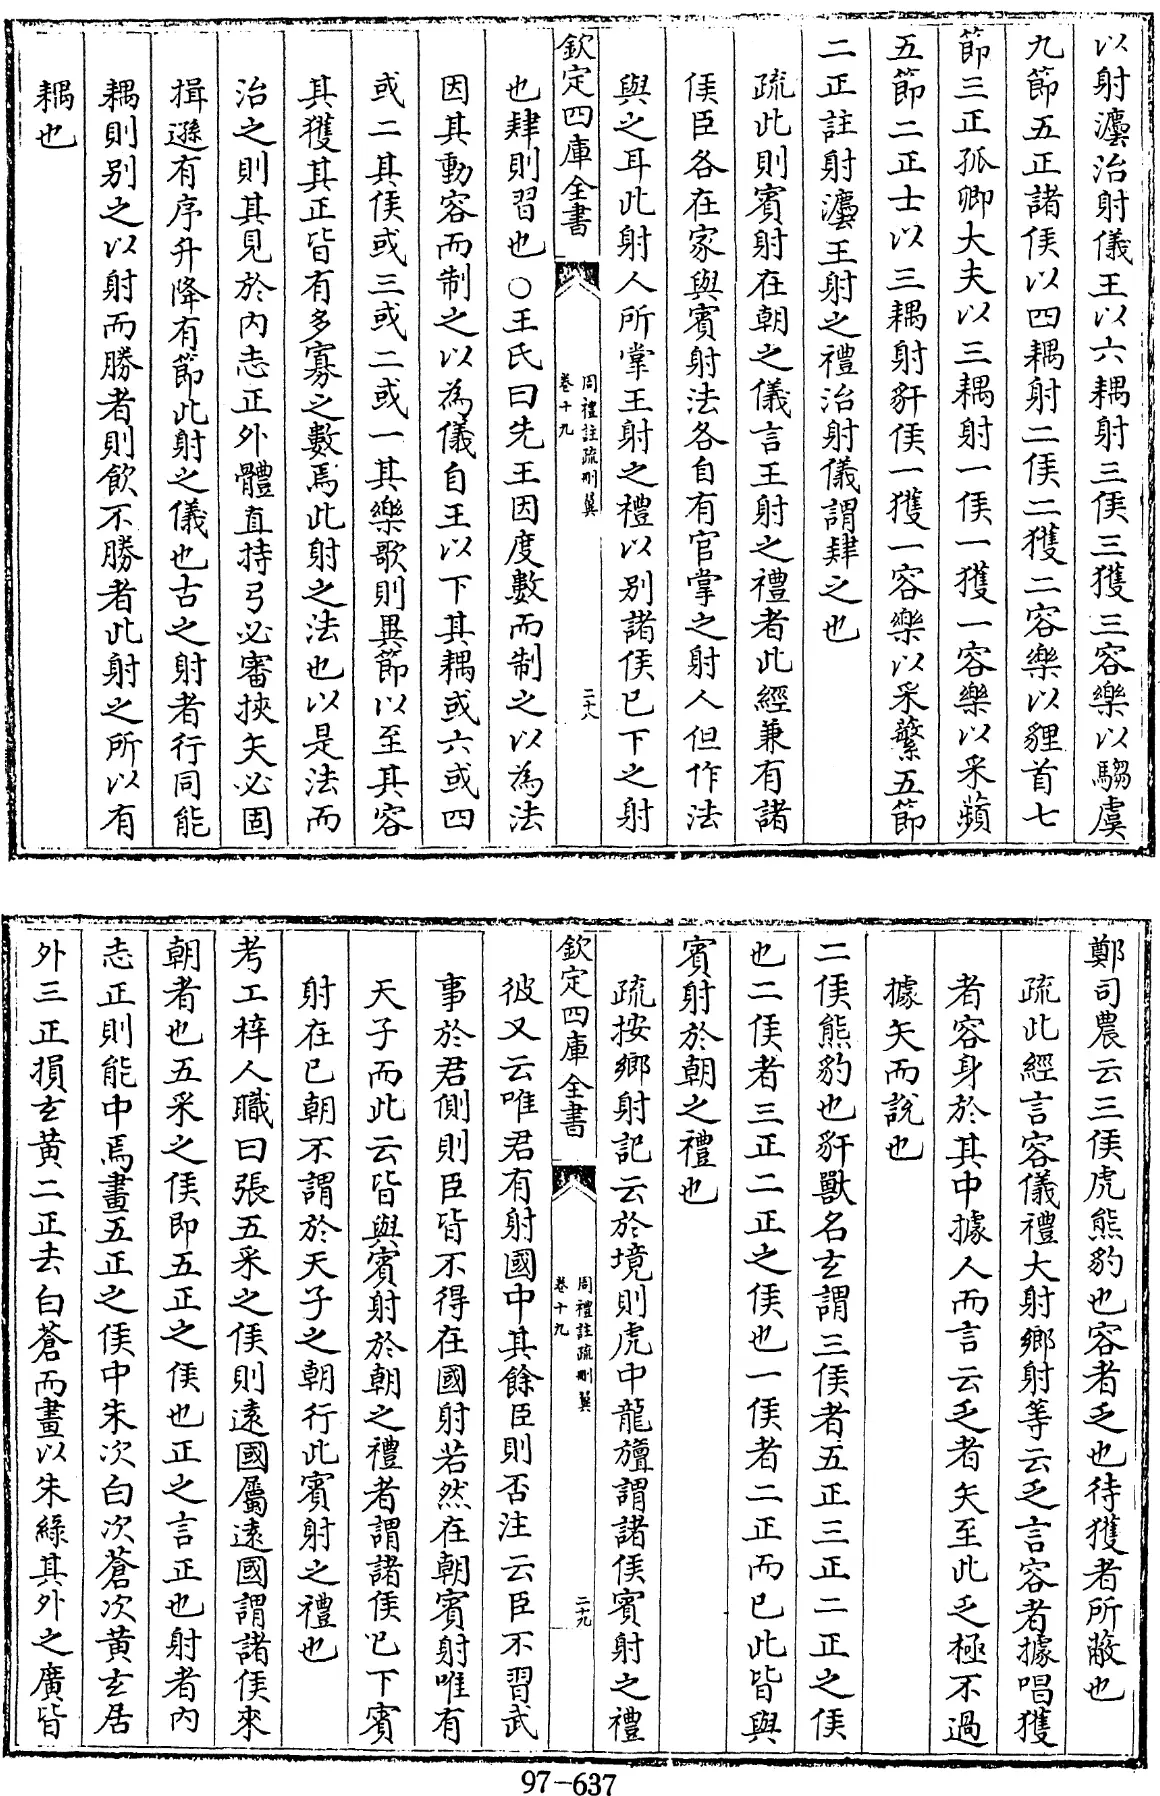 以射灋治射儀王以六耦射三侯三獲三容樂以騶虞
九節五正諸侯以四耦射二侯二獲二容樂以貍首七
節三正孤卿大夫以三耦射一侯一獲一容樂以采蘋
五節二正士以三耦射豻侯一獲一容樂以采蘩五節
二正註射灋王射之禮治射儀謂肄之也
疏此則賓射在朝之儀言王射之禮者此經兼有諸
侯臣各在家與賓射法各自有官掌之射人但作法
與之耳此射人所掌王射之禮以别諸侯已下之射
欽定四庫全書
周禮註疏刪翼
卷十九
二十八
也肄則習也○王氏曰先王因度數而制之以為法
因其動容而制之以為儀自王以下其耦或六或四
或二其侯或三或二或一其樂歌則異節以至其容
其獲其正皆有多寡之數焉此射之法也以是法而
治之則其見於內志正外體直持弓必審挾矢必固
揖遜有序升降有節此射之儀也古之射者行同能
耦則别之以射而勝者則飲不勝者此射之所以有
耦也
鄭司農云三侯虎熊豹也容者乏也待獲者所蔽也
疏此經言容儀禮大射鄉射等云乏言容者據唱獲
者容身於其中據人而言云乏者矢至此乏極不過
據矢而說也
二侯熊豹也豻獸名玄謂三侯者五正三正二正之侯
也二侯者三正二正之侯也一侯者二正而已此皆與
賓射於朝之禮也
疏按鄉射記云於境則虎中龍旜謂諸侯賓射之禮
欽定四庫全書
周禮註疏刪翼
卷十九
二十九
彼又云唯君有射國中其餘臣則否注云臣不習武
事於君側則臣皆不得在國射若然在朝賓射唯有
天子而此云皆與賓射於朝之禮者謂諸侯已下賓
射在已朝不謂於天子之朝行此賓射之禮也
考工梓人職曰張五采之侯則遠國屬遠國謂諸侯來
朝者也五采之侯即五正之侯也正之言正也射者內
志正則能中焉畫五正之侯中朱次白次蒼次黃玄居
外三正損玄黃二正去白蒼而畫以朱綠其外之廣皆
97-637